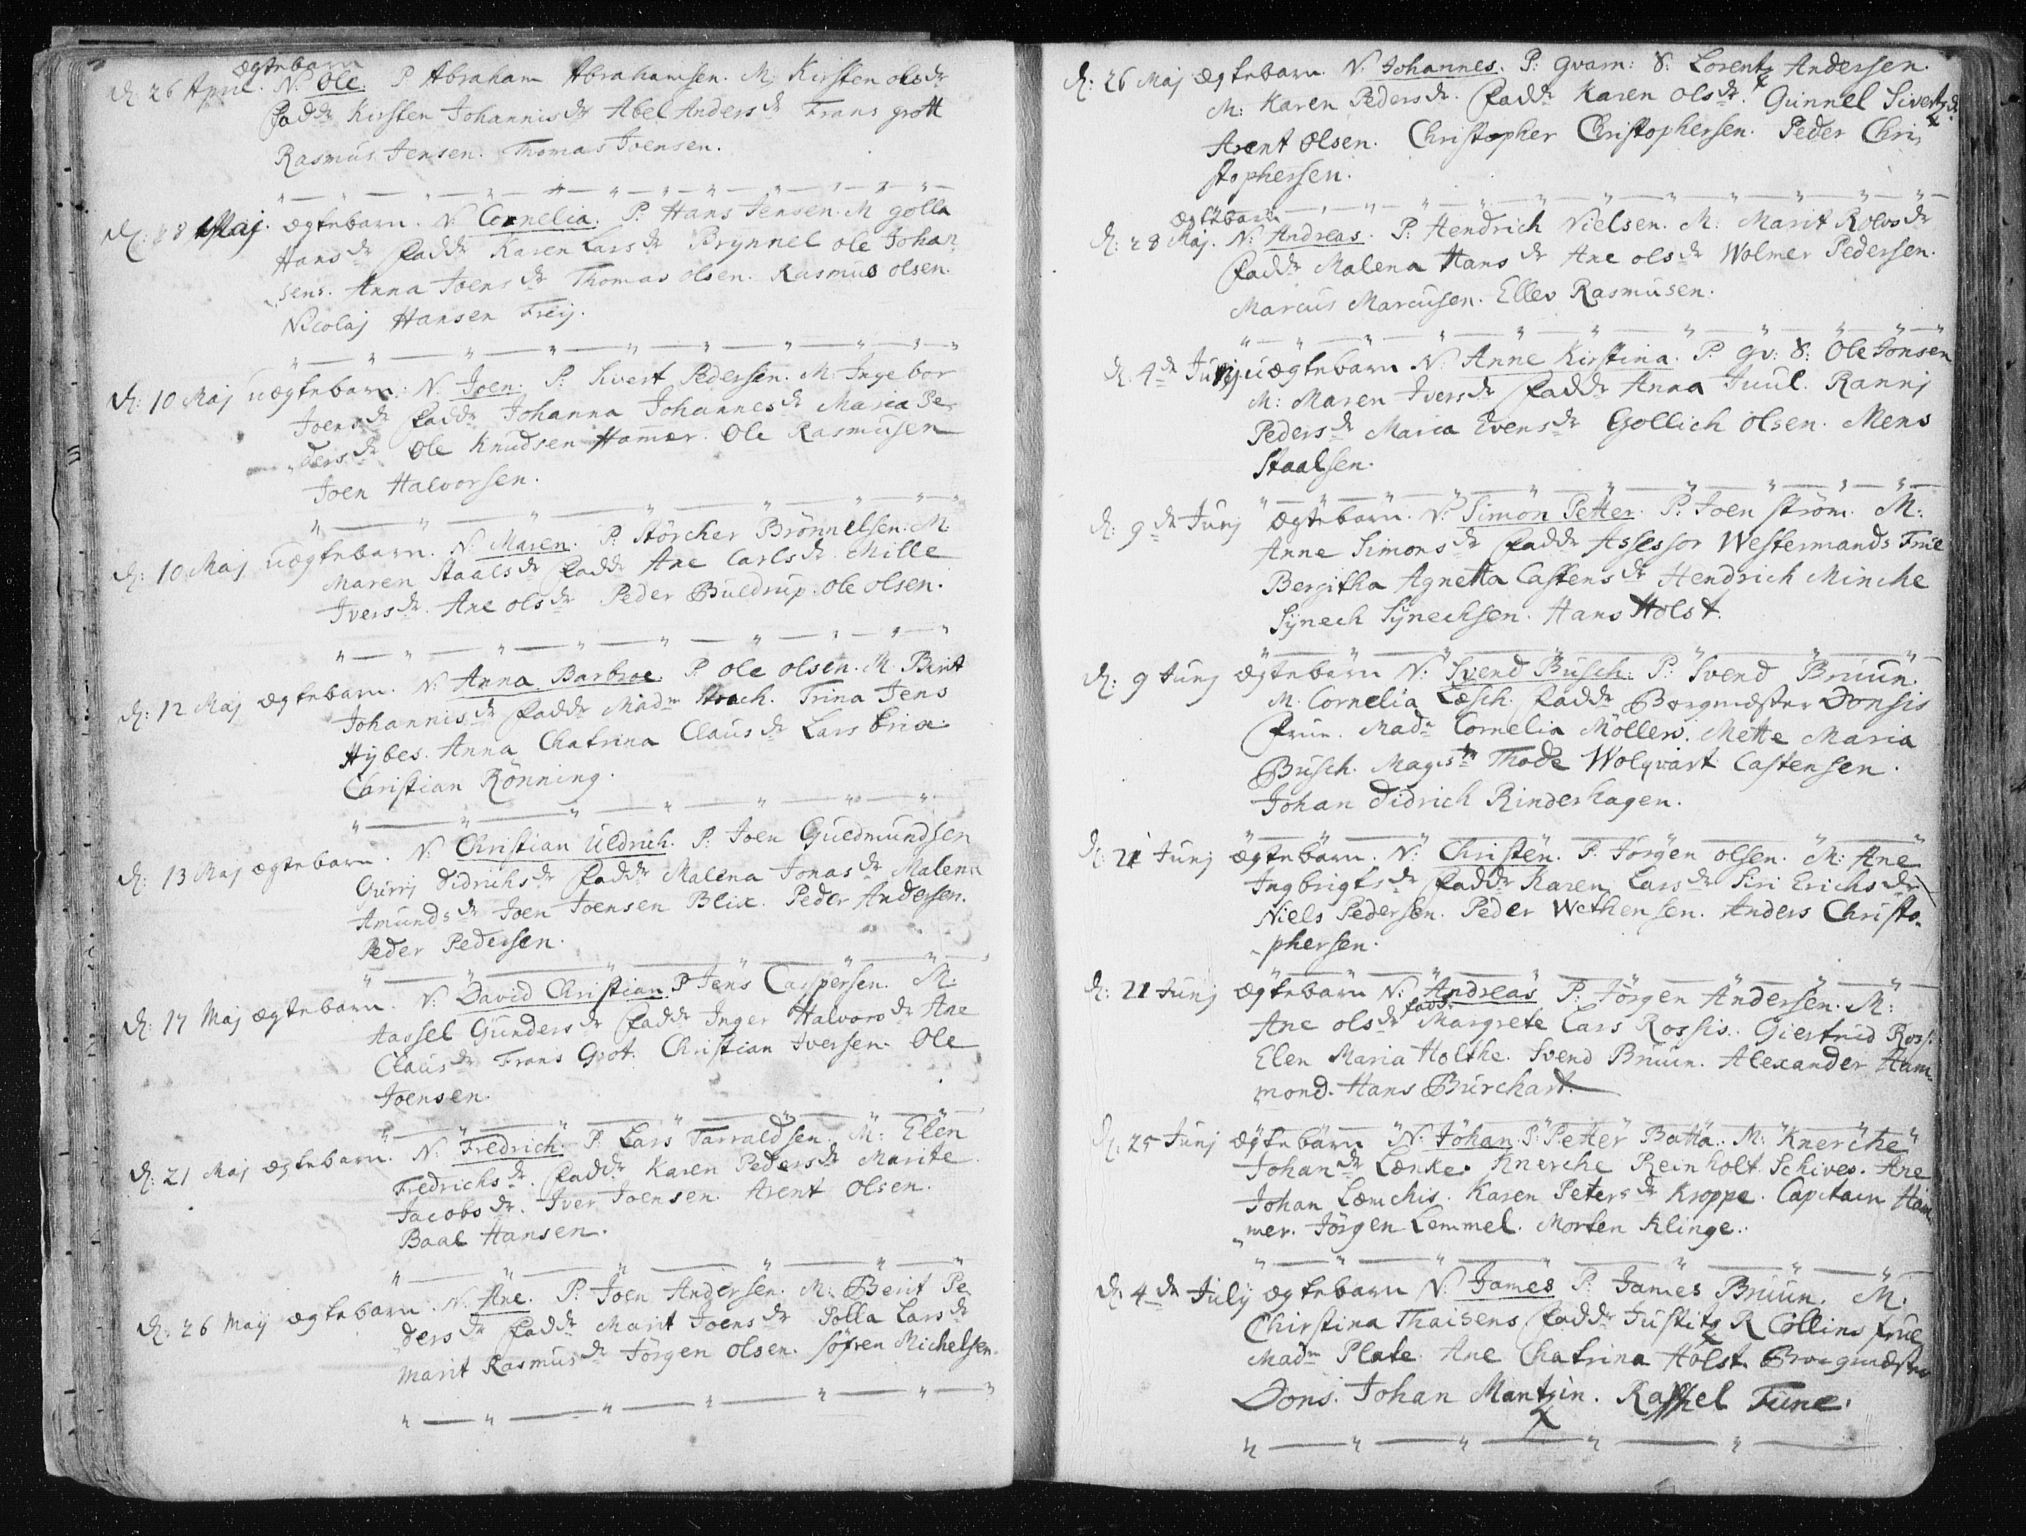 ægtebarn
d: 26 April. N: Ole. P: Abraham Abrahamsen. M: Kirsten olsdr
fadde Kirsten Johannisdr Abel Andersdr Frans grott
Rasmus Jensen. Thomas Joensen.
d: 28 Maj. ægtebarn. N: Cornelia. P: Hans Jensen. M golla
Hansdr fadde Karen Larsdr Brynnil ole Johan
sens. Anna Joensdr Thomas olsen. Rasmus olsen.
Nicolaj Hansen Freij.
d: 10 Maj uægtebarn: N: Joen. P: Sivert Pedersen. M: Ingebor
Joensdr fadde Johanna Johannesdr Maria Pe
dersdr Ole Knudsen Hamer. Ole Rasmusen
Joen Halvorsen.
d: 10 Maj uægtebarn. N: Maren. P: Störcher Brönnelsen. M.
Maren Staalsdr fadde Ane Carlsdr. Mille
Iversdr. Ane olsdr Peder Buedrup. ole olsen.
d: 12 Maj ægtebarn. N: Anna Barbroe. P: ole olsen. M. Birit
Johannisdr fadde Madm Strach. Trina Jens
Hybes. Anna Chatrina Clausdr Lars brix
Christian Rönning.
d: 13 Maj ægtebarn. N: Christian Uldrich. P: Joen Guedmundsen
Gurrj Didrichsdr fadde Malena Jonasdr Malena
Amundsdr Joen Joensen Blix. Peder Andersen.
Peder Pedersen.
d: 17 Maj ægtebarn. N: David Christian. P Jens Caspersen. M:
Aassel Gundersdr fadde Inger Halvorsdr Ane
Clausdr Frans Grot. Christian Iversen. Ole
Joensen.
d: 21 Maj ægtebarn. N: Fredrich. P: Lars Tarraldsen. M: Elen
Fredrichsdr. fadde Karen Pedersdr Marite
Jacobsdr. Iver Joensen. Arent Olsen.
Baal Hansen.
d: 26 Maij ægtebarn. N: Ane. P: Joen Andersen. M: Berit Pe
dersdr fadde Marit Joensdr Solla Larsdr
Marit Rasmusdr Jörgen olsen. Söfren Michelsen.
d: 26 Maj ægtebarn. N: Johannes. P: gvarn: S: Lorentz Andersen.
M: Karen Pedersdr. fadde Karen olsdr. Gunnel Sivertzdr.
Arent Olsen. Christopher Christophersen. Peder Chri
stophersen.
ægtebarn
d: 28 Maj. N: Andreas. P: Hendrich Nielsen. M: Marit Rolvsdr
fadde Malena Hansdr Ane olsdr Wolmer Pedersen.
Marcus Marcusen. Ellev Rasmusen.
d: 4de Junj uægtebarn N: Anne Kirstina. P: gv: S: Ole Jonsen
M: Maren Iversdr fadde Anna Juul. Rannj
Pedersdr Maria Evensdr Gollich olsen. Mens
Staalsen.
d: 9de Junj ægtebarn. N: Simon Petter. P: Joen ström. M:
Anne Simonsdr fadde Assessor Westermands Frue
Bergitha Agnetta Castensdr Hendrich Minche
Synech Synechsen. Hans Holst.
d: 9 Junj ægtebarn N: Svend Busch. P: Svend Bruun.
M. Cornelia Læsch. fadde Borgmæster Donsis
frue. Madm Cornelia Möllers. Mette Maria
Busch. Magistr Thode Wolqvart Castensen.
Johan Didrich Rinderhagen.
d: 21 Junj ægtebarn. N: Christen. P. Jörgen olsen. M: Ane
Ingbrigtsdr fadde Karen Larsdr Siri Erichsdr
Niels Pedersen. Peder Wethensen. Anders Christo
phersen.
d: 21 Junj ægtebarn N: Andreas P: Jörgen Andersen. M:
Ane olsdr fadde Margrete Lars Rossis. Giertrud Ross.
Elen Maria Holthe. Svend Bruun. Alexander Ham
mond. Hans Burchart.
d: 25 Junj ægtebarn N: Johan P: Petter Batta. M: Knerche
Johandr Lænke. Knerche Reinholt Schives. Ane
Johan Læmchis. Karen Petersdr Kroppe. Capitain Ham
mer. Jörgen Lemmel. Morten Klinge.
d: 4de Julij ægtebarn N: James P: James Bruun. M.
Chirstina Thaisens fadde Justitz R Collins frue
Madm Plate. Ane Chatrina Holst. Borgmæster
Dons. Johan Mantzin. Raffhel Tune.